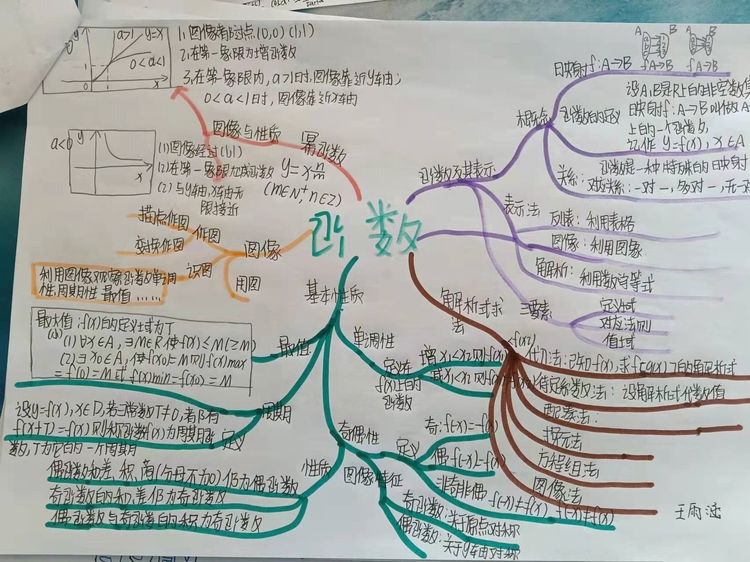 函数
y
a>1
y=x
0<a<1
1
1
x
1、图像都过点(0,0)(1,1)
2、在第一象限为增函数
3、在第一象限内,a>1时,图像靠近y轴;
0<a<1时,图像靠近x轴
图像与性质
幂函数
(m∈N+,n∈Z)
a<0
y
x
(1)图像经过(1,1)
(2)在第一象限为减函数
(2)与y轴、x轴无
限接近
描点作图
变换作图
作图
识图
用图
图像
利用图像观察函数单调
性、周期性 最值……
基本性质
最大值:f(x)的定义域为I
(1)∀x∈A,∃M∈R使f(x)≤M(≥M)
(2)∃x0∈A,使f(x0)=M则f(x)max
=f(x0)=M或f(x)min=f(x0)=M
最值
单调性
定义
f(x)上的
函数
增 x1<x2则
减 x1<x2则
设y=f(x),x∈D,若∃常数T≠0,若
f(x+T)=f(x)则称函数f(x)为周期函
数,T为它的一个周期
周期
定义
奇偶性
定义
奇:
偶:
非奇非偶:f(x)≠f(x),f(x)≠f(x)
图像特征
奇函数:关于原点对称
偶函数:关于y轴对称
性质
偶函数和差、积、商(分母不为0)仍为偶函数
奇函数的和、差仍为奇函数
偶函数与奇函数的积为奇函数
函数及其表示
相关概念
映射f:A→B
A
B
f:A→B
A
B
f:A→B
函数的定义
设A、B是R上的非空数集
映射f:A→B叫做A
上的一个函数,
记作 y=f(x),x∈A
关系:
函数是一种特殊的映射
对应关系:一对一,多对一,
表示法
列表:利用表格
图像:利用图像
解析:利用数学等式
三要素
定义域
对应法则
值域
解析式求
法
f(x)
已知f(x),求f[g(x)]的解析式
待定系数法:设解析式代数值
配凑法:
换元法
方程组法
图像法
王雨涵